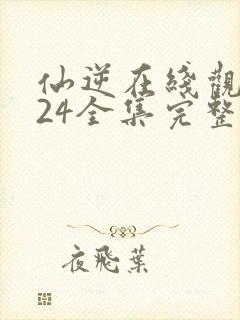 仙逆在綫觀
24全集完整
夜飛葉